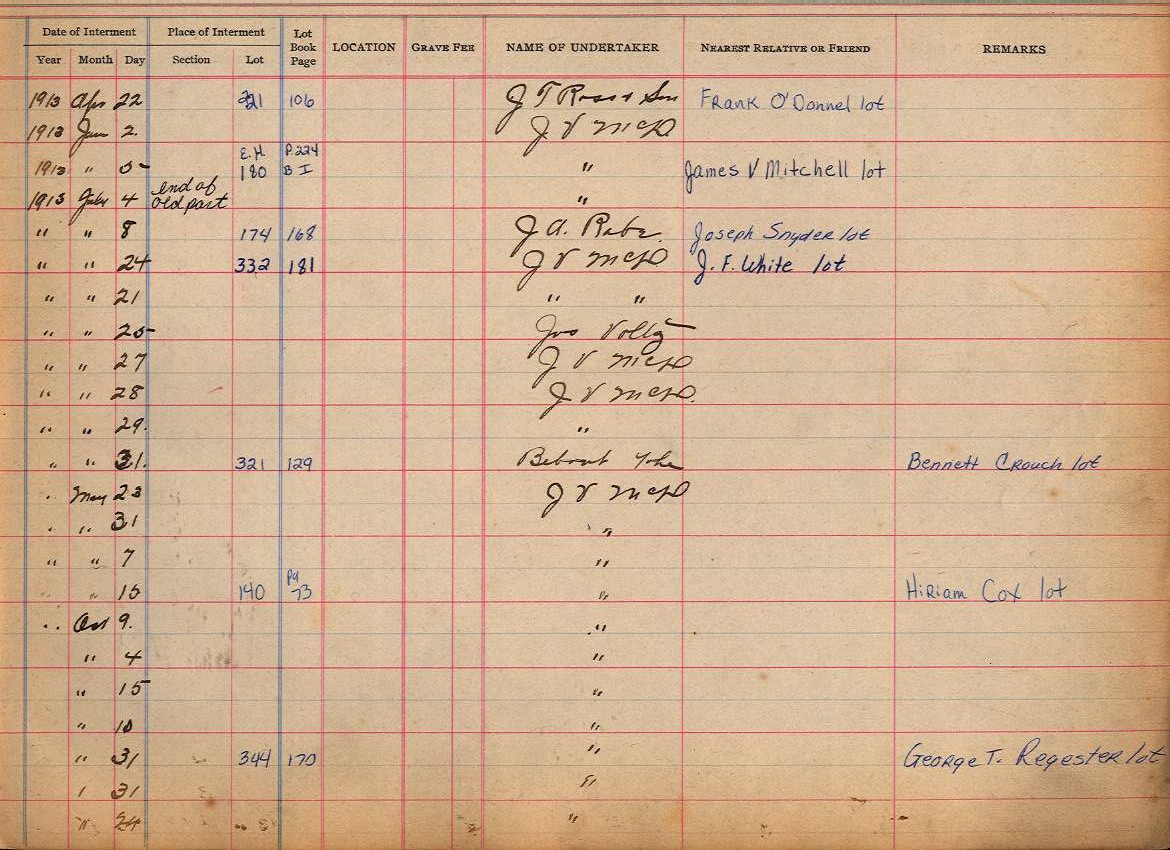 Date of Interment Place of Interment Lot Book Page LOCATION GRAVE FEE NAME OF UNDERTAKER NEAREST RELATIVE OR FRIEND REMARKS
Year Month Day Section Lot
1913 Apr 22 321 106 J T Ross & Son Frank O'Donnel lot
1913 2. J V McD
E.H. P.224
1913 " 5 180 B I " James V Mitchell lot
end of
1913 July 4 old part "
" " 8 174 168 J A. Rabe. Joseph Snyder lot
" " 24 332 181 J V McD J. F. White lot
" " 21 " "
" " 25 Jos
" " 27 J V McD
" " 28 J V McD.
" " 29. "
" " 31. 321 129 Bebout Yohe Bennett Crouch lot
. May 23 J V McD
. " 31 "
" " 7 "
Pg
" 15 140 73 " Hiriam Cox lot
.. Oct 9. "
" 4 "
" 15 "
" 10 "
" 31 344 170 " George T. Regester lot
31 "
" 24 "